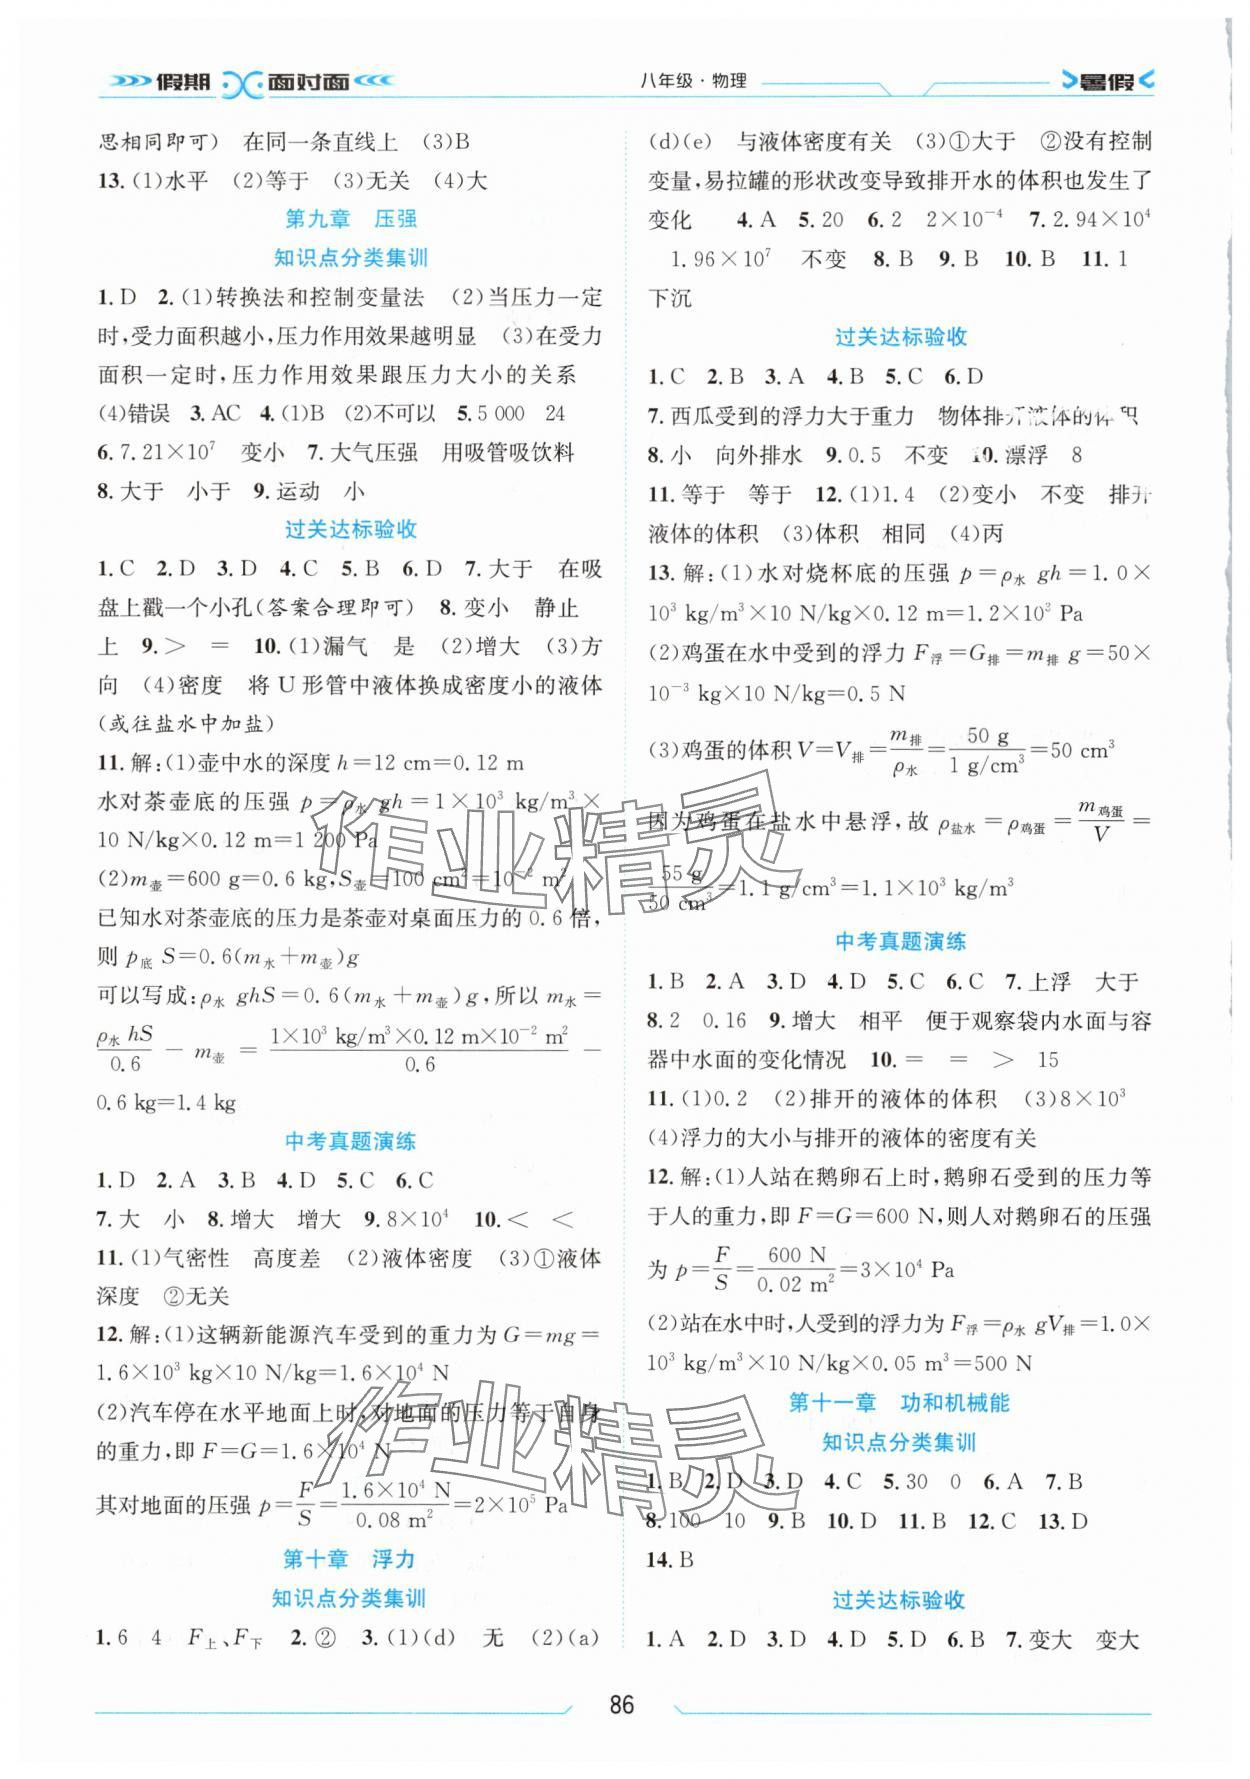 假期 面对面
八年级·物理
暑假
思相同即可) 在同一条直线上 (3)B
13.(1)水平 (2)等于 (3)无关 (4)大
第九章 压强
知识点分类集训
1.D 2.(1)转换法和控制变量法 (2)当压力一定
时,受力面积越小,压力作用效果越明显 (3)在受力
面积一定时,压力作用效果跟压力大小的关系
(4)错误 3.AC 4.(1)B (2)不可以 5.5 000 24
6.7.21×10⁷ 变小 7.大气压强 用吸管吸饮料
8.大于 小于 9.运动 小
过关达标验收
1.C 2.D 3.D 4.C 5.B 6.D 7.大于 在吸
盘上戳一个小孔(答案合理即可) 8.变小 静止
上 9.> = 10.(1)漏气 是 (2)增大 (3)方
向 (4)密度 将 U 形管中液体换成密度小的液体
(或往盐水中加盐)
11.解:(1)壶中水的深度 h=12 cm=0.12 m
水对茶壶底的压强 p=ρ水 gh=1×10³ kg/m³×
10 N/kg×0.12 m=1 200 Pa
(2)m壶=600 g=0.6 kg,S壶=100 cm²=10⁻² m²
已知水对茶壶底的压力是茶壶对桌面压力的 0.6 倍,
则 p底 S=0.6(m水+m壶)g
可以写成:ρ水 ghS=0.6(m水+m壶)g,所以 m水=
ρ水 hS/0.6 - m壶 = 1×10³ kg/m³×0.12 m×10⁻² m²/0.6 -
0.6 kg=1.4 kg
中考真题演练
1.D 2.A 3.B 4.D 5.C 6.C
7.大 小 8.增大 增大 9.8×10⁴ 10.< <
11.(1)气密性 高度差 (2)液体密度 (3)①液体
深度 ②无关
12.解:(1)这辆新能源汽车受到的重力为 G=mg=
1.6×10³ kg×10 N/kg=1.6×10⁴ N
(2)汽车停在水平地面上时,对地面的压力等于自身
的重力,即 F=G=1.6×10⁴ N
其对地面的压强 p=F/S=1.6×10⁴ N/0.08 m²=2×10⁵ Pa
第十章 浮力
知识点分类集训
1.6 4 F上、F下 2.② 3.(1)(d) 无 (2)(a)
(d)(e) 与液体密度有关 (3)①大于 ②没有控制
变量,易拉罐的形状改变导致排开水的体积也发生了
变化 4.A 5.20 6.2 2×10⁻⁴ 7.2.94×10⁴
1.96×10⁷ 不变 8.B 9.B 10.B 11.1
下沉
过关达标验收
1.C 2.B 3.A 4.B 5.C 6.D
7.西瓜受到的浮力大于重力 物体排开液体的体积
8.小 向外排水 9.0.5 不变 10.漂浮 8
11.等于 等于 12.(1)1.4 (2)变小 不变 排开
液体的体积 (3)体积 相同 (4)丙
13.解:(1)水对烧杯底的压强 p=ρ水 gh=1.0×
10³ kg/m³×10 N/kg×0.12 m=1.2×10³ Pa
(2)鸡蛋在水中受到的浮力 F浮=G排=m排 g=50×
10⁻³ kg×10 N/kg=0.5 N
(3)鸡蛋的体积 V=V排=m排/ρ水=50 g/1 g/cm³=50 cm³
因为鸡蛋在盐水中悬浮,故 ρ盐水=ρ鸡蛋=m鸡蛋/V=
55 g/50 cm³=1.1 g/cm³=1.1×10³ kg/m³
中考真题演练
1.B 2.A 3.D 4.D 5.C 6.C 7.上浮 大于
8.2 0.16 9.增大 相平 便于观察袋内水面与容
器中水面的变化情况 10.= = > 15
11.(1)0.2 (2)排开的液体的体积 (3)8×10³
(4)浮力的大小与排开的液体的密度有关
12.解:(1)人站在鹅卵石上时,鹅卵石受到的压力等
于人的重力,即 F=G=600 N,则人对鹅卵石的压强
为 p=F/S=600 N/0.02 m²=3×10⁴ Pa
(2)站在水中时,人受到的浮力为 F浮=ρ水 gV排=1.0×
10³ kg/m³×10 N/kg×0.05 m³=500 N
第十一章 功和机械能
知识点分类集训
1.B 2.D 3.D 4.C 5.30 0 6.A 7.B
8.100 10 9.B 10.D 11.B 12.C 13.D
14.B
过关达标验收
1.A 2.D 3.D 4.D 5.D 6.B 7.变大 变大
86
作业精灵
作业精灵